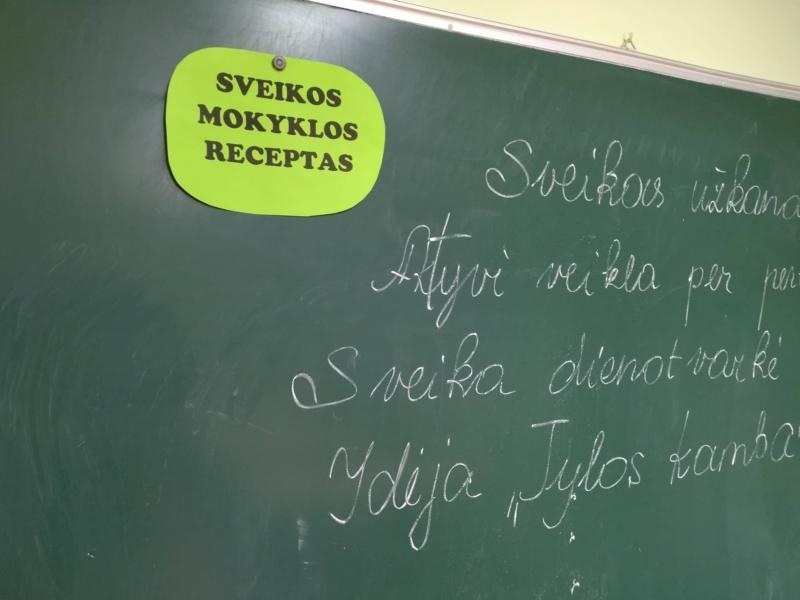 SVEIKOS
MOKYKLOS
RECEPTAS
Sveikas užkana
Aktyvi veikla per per
Sveika dienotvarkė
Ydija „Tylos kamba